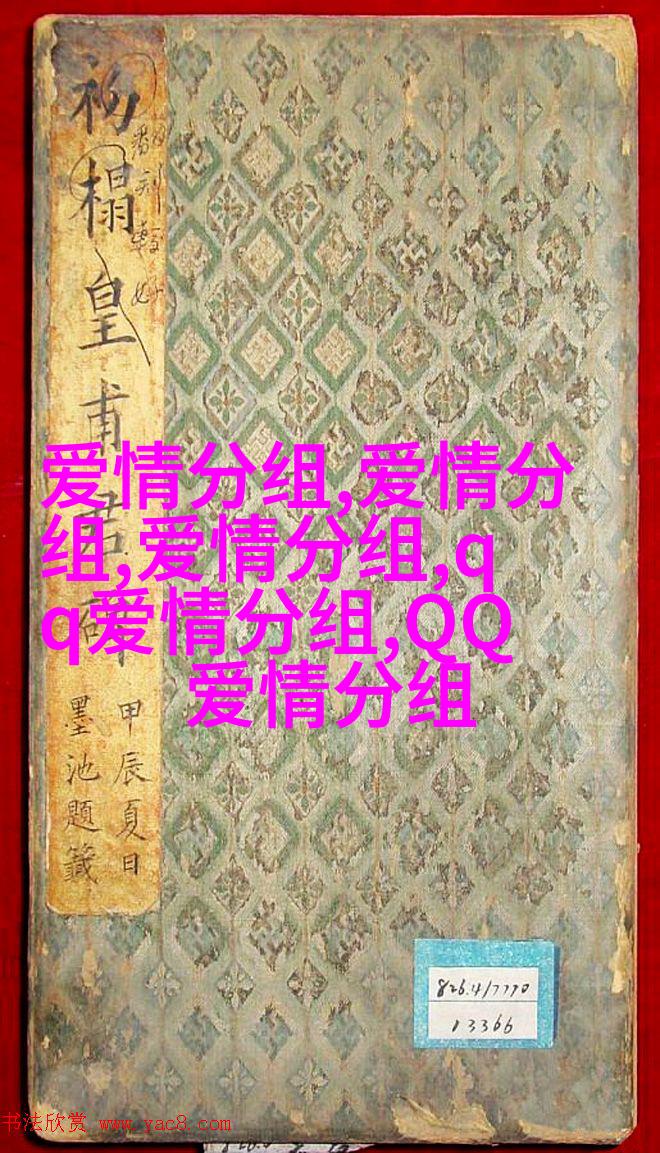 初榻皇甫君碑
甲辰夏日
墨池題籤
爱情分组,爱情分
组,爱情分组,q
q爱情分组,QQ
爱情分组
826.4/7770
13366
书法欣赏 www.yac8.com